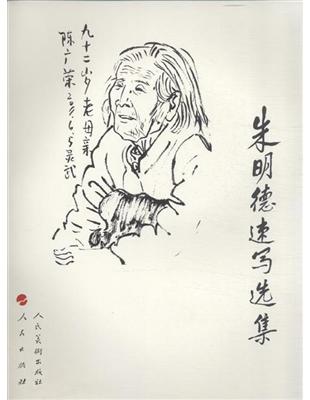 九十二岁老母亲
陈广荣
朱明德速写选集
人民美术出版社
人民出版社